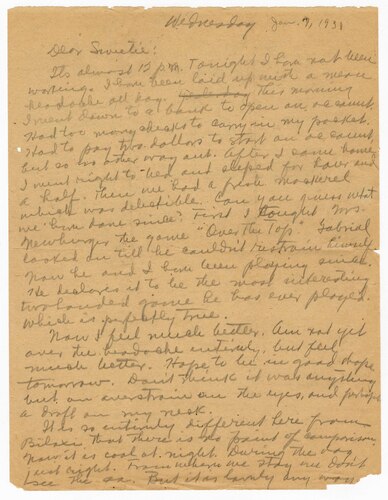 Wednesday Jan. 7, 1931
Dear Sweetie:
It's almost 12 P.M. Tonight I have not been
working. I have been laid up with a mean
headache all day. this morning
I went down to a bank to open an account.
Had too many checks to carry in my pocket.
Had to pay two dollars to start an account
but so no other way out. After I came home
I went right to bed and sleped for hour and
a half. Then we had a fresh mackerel
which was delectible. Can you guess what
we have done since? First I taught Mrs.
Newburger the game "Over the Top". Gabriel
looked on till he couldn't restrain himself.
Now he and I have been playing since.
He declares it to be the most interesting
two handed game he has ever played.
Which is perfectly true.
Now I feel much better. Am not yet
over the headache entirely, but feel
much better. Hope to be in good shape
tomorrow. Don't think it was anything
but an overstrain on the eyes, and perhaps
a draft on my neck.
It is so entirely different here from
Biloxi that there is no point of comparison.
Now it is cool at night. During the day
just right. From where we stay we don't
see the sea. But it is lovely any way